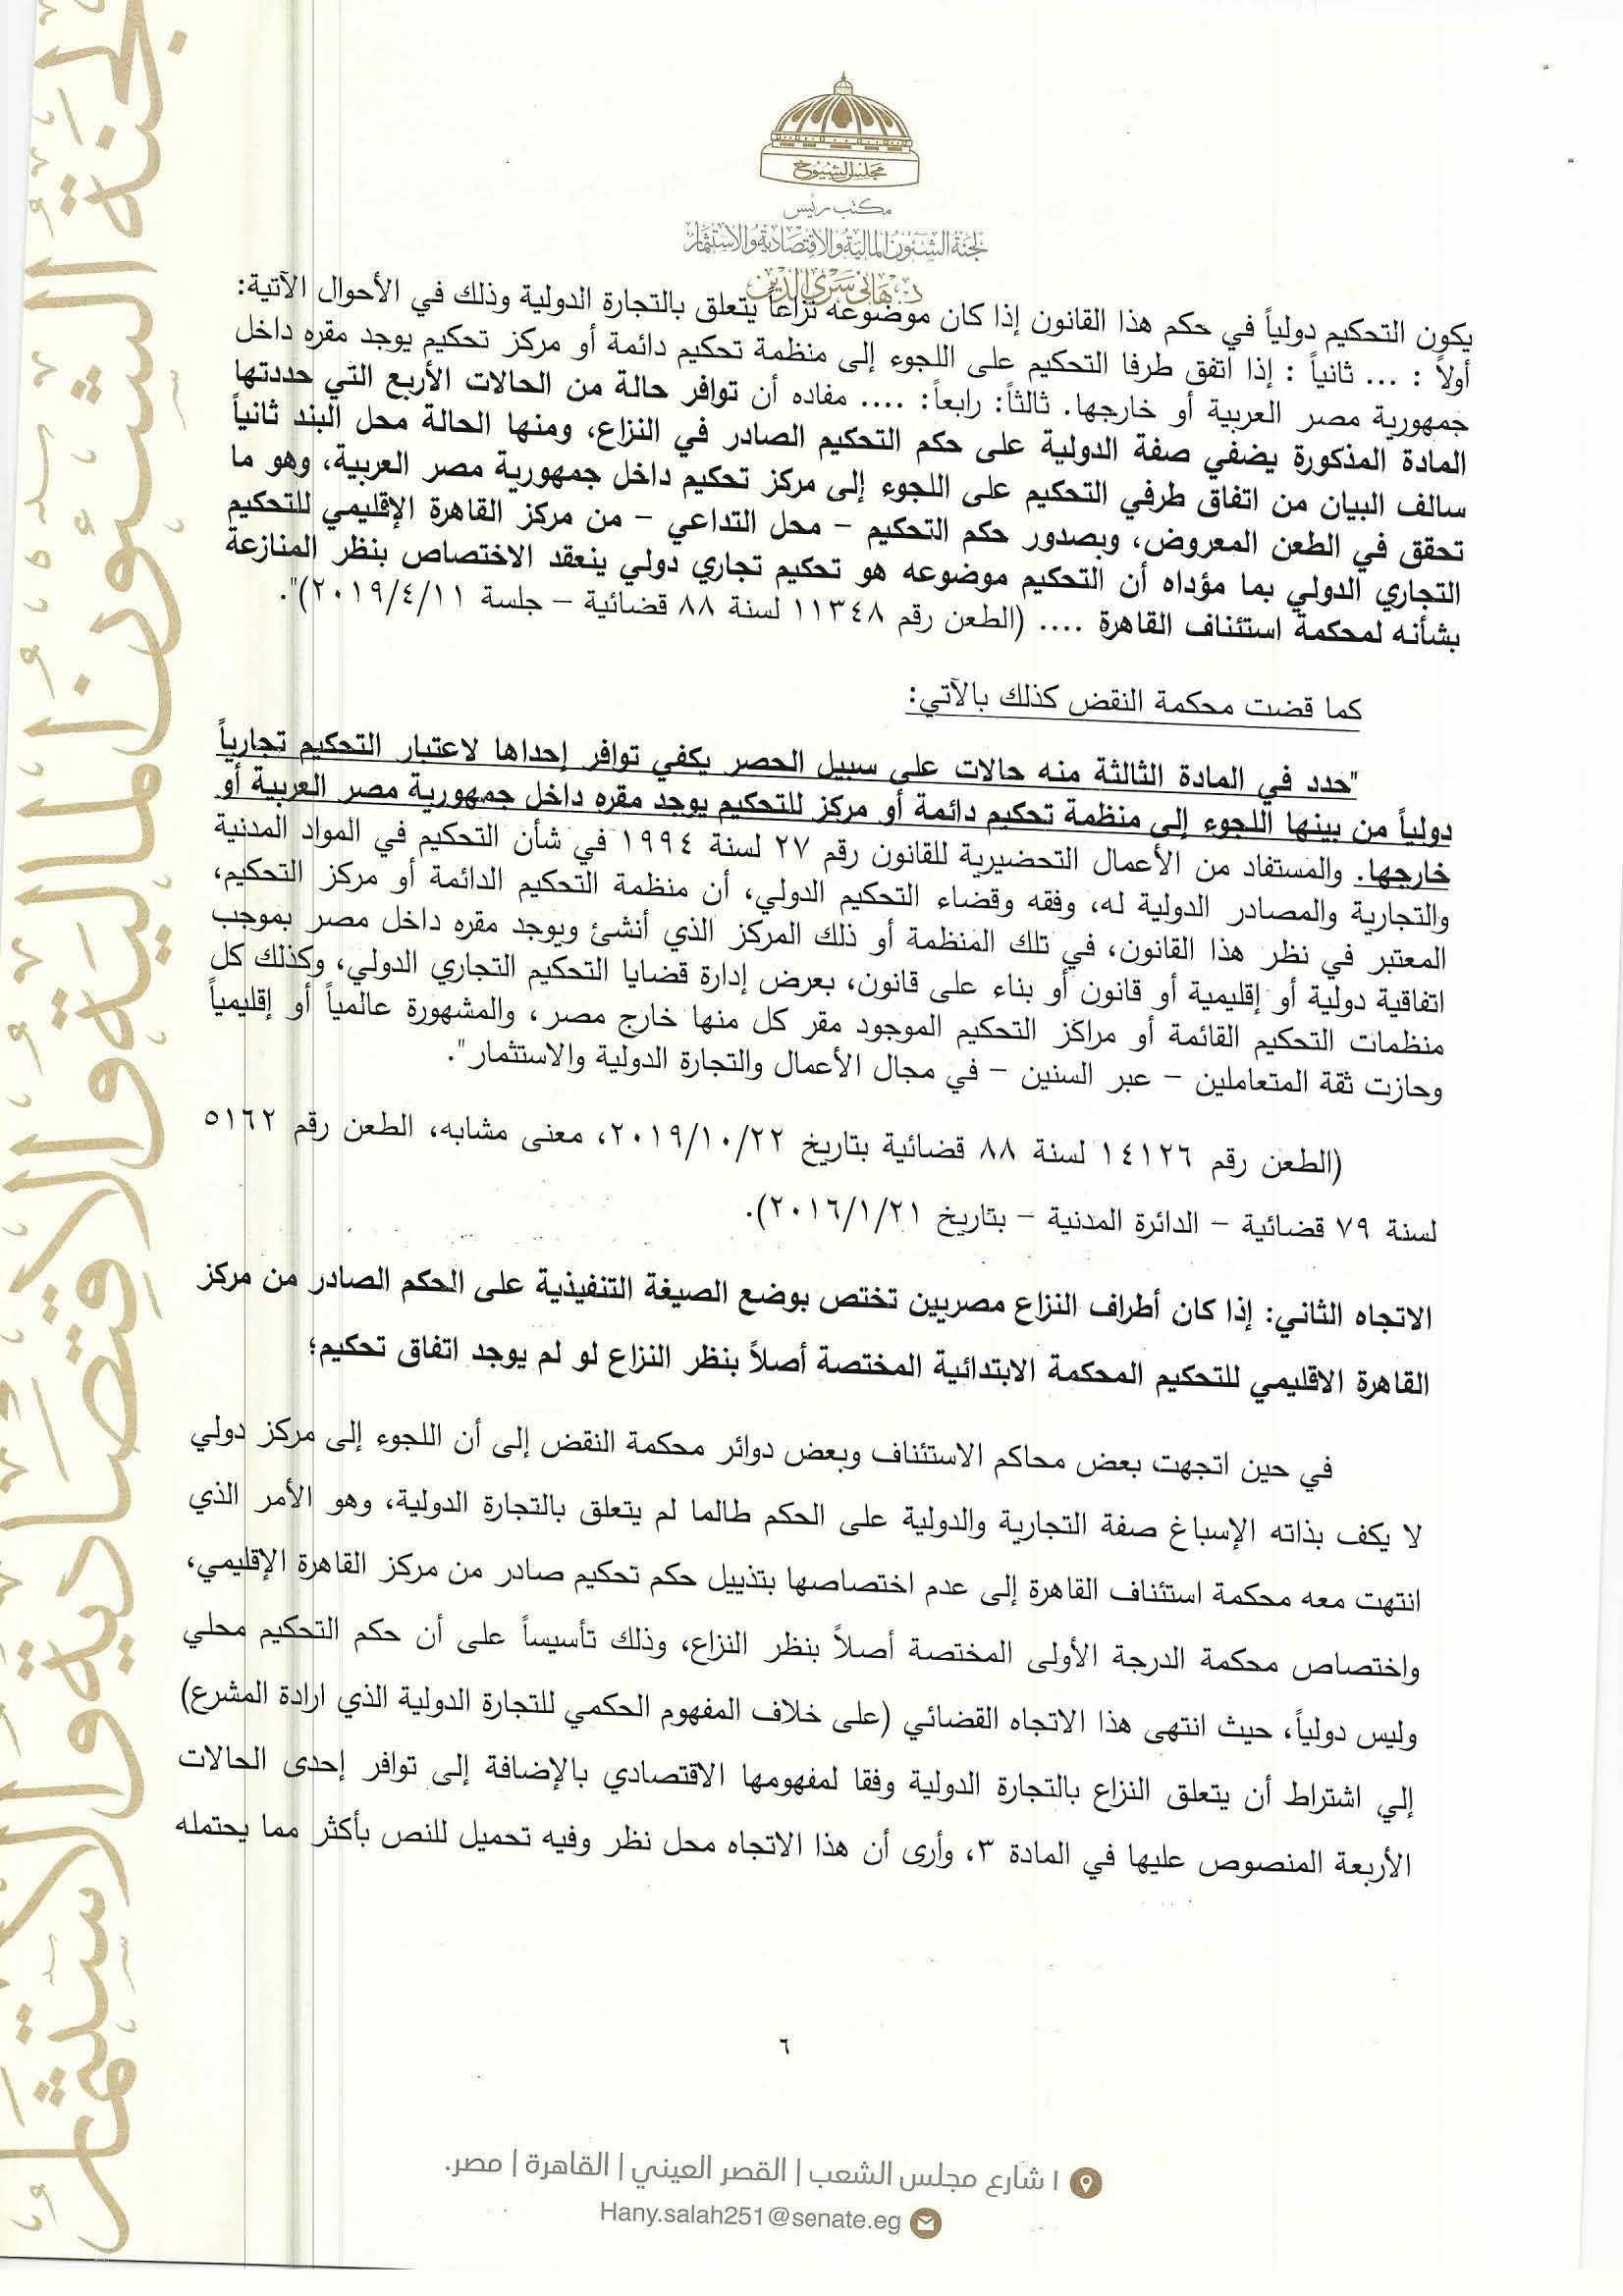 مجلس الشيوخ
مكتب رئيس
لجنة الشئون المالية والاقتصادية والاستثمار
د. هاني سري الدين
يكون التحكيم دولياً في حكم هذا القانون إذا كان موضوعه نزاعاً يتعلق بالتجارة الدولية وذلك في الأحوال الآتية:
أولاً : ... ثانياً : إذا اتفق طرفا التحكيم على اللجوء إلى منظمة تحكيم دائمة أو مركز تحكيم يوجد مقره داخل
جمهورية مصر العربية أو خارجها. ثالثاً: رابعاً: .... مفاده أن توافر حالة من الحالات الأربع التي حددتها
المادة المذكورة يضفي صفة الدولية على حكم التحكيم الصادر في النزاع، ومنها الحالة محل البند ثانياً
سالف البيان من اتفاق طرفي التحكيم على اللجوء إلى مركز تحكيم داخل جمهورية مصر العربية، وهو ما
تحقق في الطعن المعروض، وبصدور حكم التحكيم – محل التداعي – من مركز القاهرة الإقليمي للتحكيم
التجاري الدولي بما مؤداه أن التحكيم موضوعه هو تحكيم تجاري دولي ينعقد الاختصاص بنظر المنازعة
بشأنه لمحكمة استئناف القاهرة .... (الطعن رقم ١١٣٤٨ لسنة ٨٨ قضائية – جلسة ٢٠١٩/٤/١١)".
كما قضت محكمة النقض كذلك بالآتي:
"حدد في المادة الثالثة منه حالات على سبيل الحصر يكفي توافر إحداها لاعتبار التحكيم تجارياً
دولياً من بينها اللجوء إلى منظمة تحكيم دائمة أو مركز للتحكيم يوجد مقره داخل جمهورية مصر العربية أو
خارجها. والمستفاد من الأعمال التحضيرية للقانون رقم ٢٧ لسنة ١٩٩٤ في شأن التحكيم في المواد المدنية
والتجارية والمصادر الدولية له، وفقه وقضاء التحكيم الدولي، أن منظمة التحكيم الدائمة أو مركز التحكيم،
المعتبر في نظر هذا القانون، في تلك المنظمة أو ذلك المركز الذي أنشئ ويوجد مقره داخل مصر بموجب
اتفاقية دولية أو إقليمية أو قانون أو بناء على قانون، بعرض إدارة قضايا التحكيم التجاري الدولي، وكذلك كل
منظمات التحكيم القائمة أو مراكز التحكيم الموجود مقر كل منها خارج مصر، والمشهورة عالمياً أو إقليمياً
وحازت ثقة المتعاملين – عبر السنين – في مجال الأعمال والتجارة الدولية والاستثمار".
(الطعن رقم ١٤١٢٦ لسنة ٨٨ قضائية بتاريخ ٢٠١٩/١٠/٢٢، معنى مشابه، الطعن رقم ٥١٦٢
لسنة ٧٩ قضائية – الدائرة المدنية – بتاريخ ٢٠١٦/١/٢١).
الاتجاه الثاني: إذا كان أطراف النزاع مصريين تختص بوضع الصيغة التنفيذية على الحكم الصادر من مركز
القاهرة الاقليمي للتحكيم المحكمة الابتدائية المختصة أصلاً بنظر النزاع لو لم يوجد اتفاق تحكيم؛
في حين اتجهت بعض محاكم الاستئناف وبعض دوائر محكمة النقض إلى أن اللجوء إلى مركز دولي
لا يكف بذاته الإسباغ صفة التجارية والدولية على الحكم طالما لم يتعلق بالتجارة الدولية، وهو الأمر الذي
انتهت معه محكمة استئناف القاهرة إلى عدم اختصاصها بتذييل حكم تحكيم صادر من مركز القاهرة الإقليمي،
واختصاص محكمة الدرجة الأولى المختصة أصلاً بنظر النزاع، وذلك تأسيساً على أن حكم التحكيم محلي
وليس دولياً، حيث انتهى هذا الاتجاه القضائي (على خلاف المفهوم الحكمي للتجارة الدولية الذي ارادة المشرع)
إلي اشتراط أن يتعلق النزاع بالتجارة الدولية وفقا لمفهومها الاقتصادي بالإضافة إلى توافر إحدى الحالات
الأربعة المنصوص عليها في المادة ٣، وأرى أن هذا الاتجاه محل نظر وفيه تحميل للنص بأكثر مما يحتمله
٦
١ شارع مجلس الشعب | القصر العيني | القاهرة | مصر.
Hany.salah251@senate.eg
لجنة الشئون المالية والاقتصادية والاستثمار